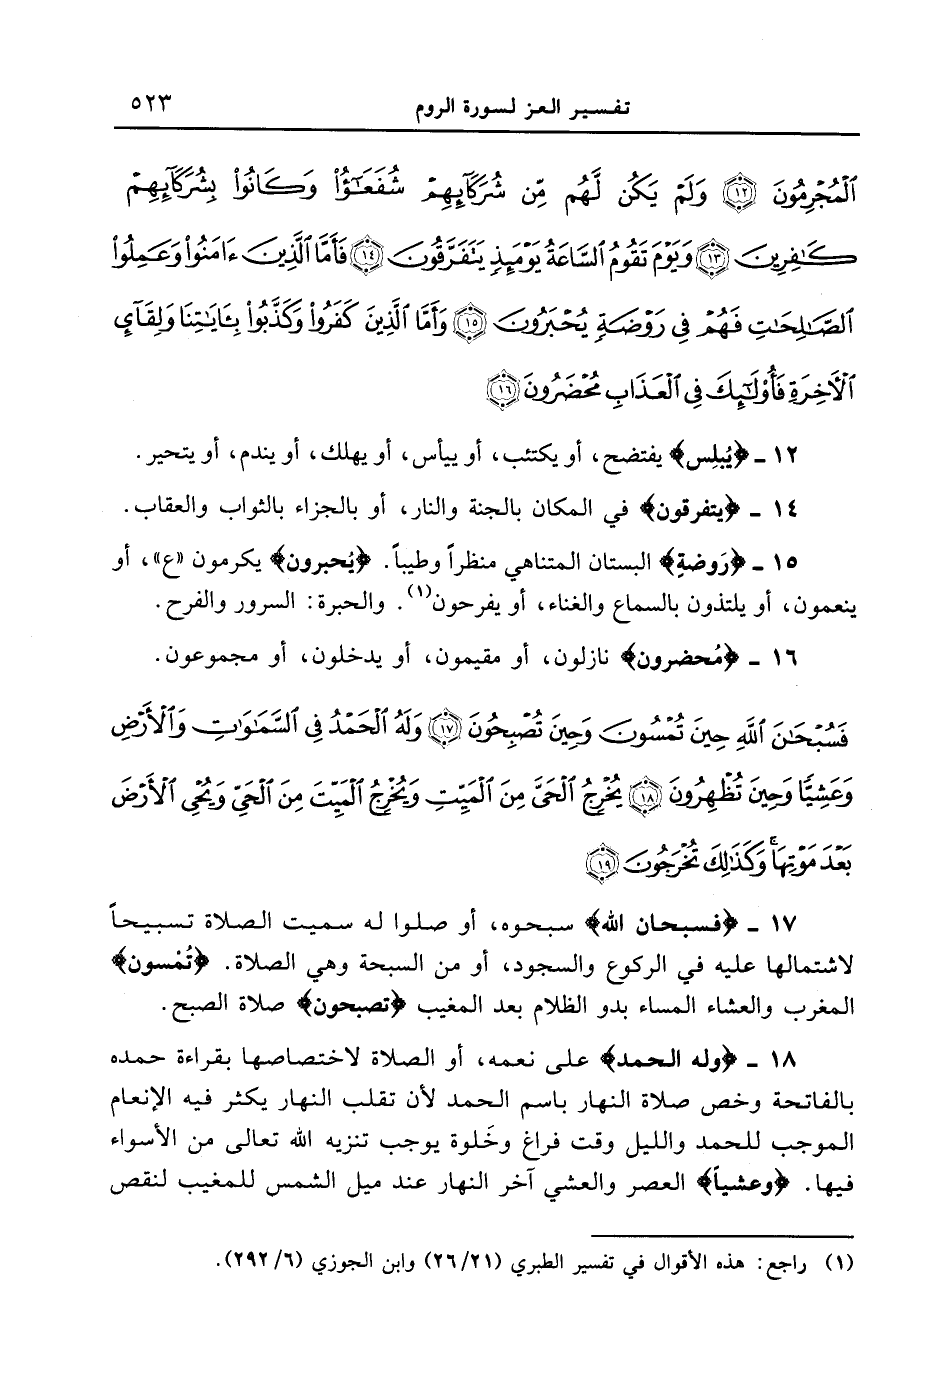 تفسير العز لسورة الروم ٥٢٣
ٱلْمُجْرِمُونَ ﴿١٢﴾ وَلَمْ يَكُن لَّهُم مِّن شُرَكَآئِهِمْ شُفَعَٰٓؤُا۟ وَكَانُوا۟ بِشُرَكَآئِهِمْ
كَٰفِرِينَ ﴿١٣﴾ وَيَوْمَ تَقُومُ ٱلسَّاعَةُ يَوْمَئِذٍ يَتَفَرَّقُونَ ﴿١٤﴾ فَأَمَّا ٱلَّذِينَ ءَامَنُوا۟ وَعَمِلُوا۟
ٱلصَّٰلِحَٰتِ فَهُمْ فِى رَوْضَةٍ يُحْبَرُونَ ﴿١٥﴾ وَأَمَّا ٱلَّذِينَ كَفَرُوا۟ وَكَذَّبُوا۟ بِـَٔايَٰتِنَا وَلِقَآئِ
ٱلْءَاخِرَةِ فَأُو۟لَٰٓئِكَ فِى ٱلْعَذَابِ مُحْضَرُونَ ﴿١٦﴾
١٢ ـ ﴿يُبلِس﴾ يفتضح، أو يكتئب، أو ييأس، أو يهلك، أو يندم، أو يتحير.
١٤ ـ ﴿يتفرقون﴾ في المكان بالجنة والنار، أو بالجزاء بالثواب والعقاب.
١٥ ـ ﴿رَوضةٍ﴾ البستان المتناهي منظراً وطيباً. ﴿يُحبرون﴾ يكرمون «ع»، أو
ينعمون، أو يلتذون بالسماع والغناء، أو يفرحون(١). والحبرة: السرور والفرح.
١٦ ـ ﴿مُحضرون﴾ نازلون، أو مقيمون، أو يدخلون، أو مجموعون.
فَسُبْحَٰنَ ٱللَّهِ حِينَ تُمْسُونَ وَحِينَ تُصْبِحُونَ ﴿١٧﴾ وَلَهُ ٱلْحَمْدُ فِى ٱلسَّمَٰوَٰتِ وَٱلْأَرْضِ
وَعَشِيًّا وَحِينَ تُظْهِرُونَ ﴿١٨﴾ يُخْرِجُ ٱلْحَىَّ مِنَ ٱلْمَيِّتِ وَيُخْرِجُ ٱلْمَيِّتَ مِنَ ٱلْحَىِّ وَيُحْىِ ٱلْأَرْضَ
بَعْدَ مَوْتِهَا ۚ وَكَذَٰلِكَ تُخْرَجُونَ ﴿١٩﴾
١٧ ـ ﴿فسبحان الله﴾ سبحوه، أو صلوا له سميت الصلاة تسبيحاً
لاشتمالها عليه في الركوع والسجود، أو من السبحة وهي الصلاة. ﴿تُمْسون﴾
المغرب والعشاء المساء بدو الظلام بعد المغيب ﴿تصبحون﴾ صلاة الصبح.
١٨ ـ ﴿وله الحمد﴾ على نعمه، أو الصلاة لاختصاصها بقراءة حمده
بالفاتحة وخص صلاة النهار باسم الحمد لأن تقلب النهار يكثر فيه الإنعام
الموجب للحمد والليل وقت فراغ وخَلوة يوجب تنزيه الله تعالى من الأسواء
فيها. ﴿وعشياً﴾ العصر والعشي آخر النهار عند ميل الشمس للمغيب لنقص
(١) راجع: هذه الأقوال في تفسير الطبري (٢٦/٢١) وابن الجوزي (٢٩٢/٦).